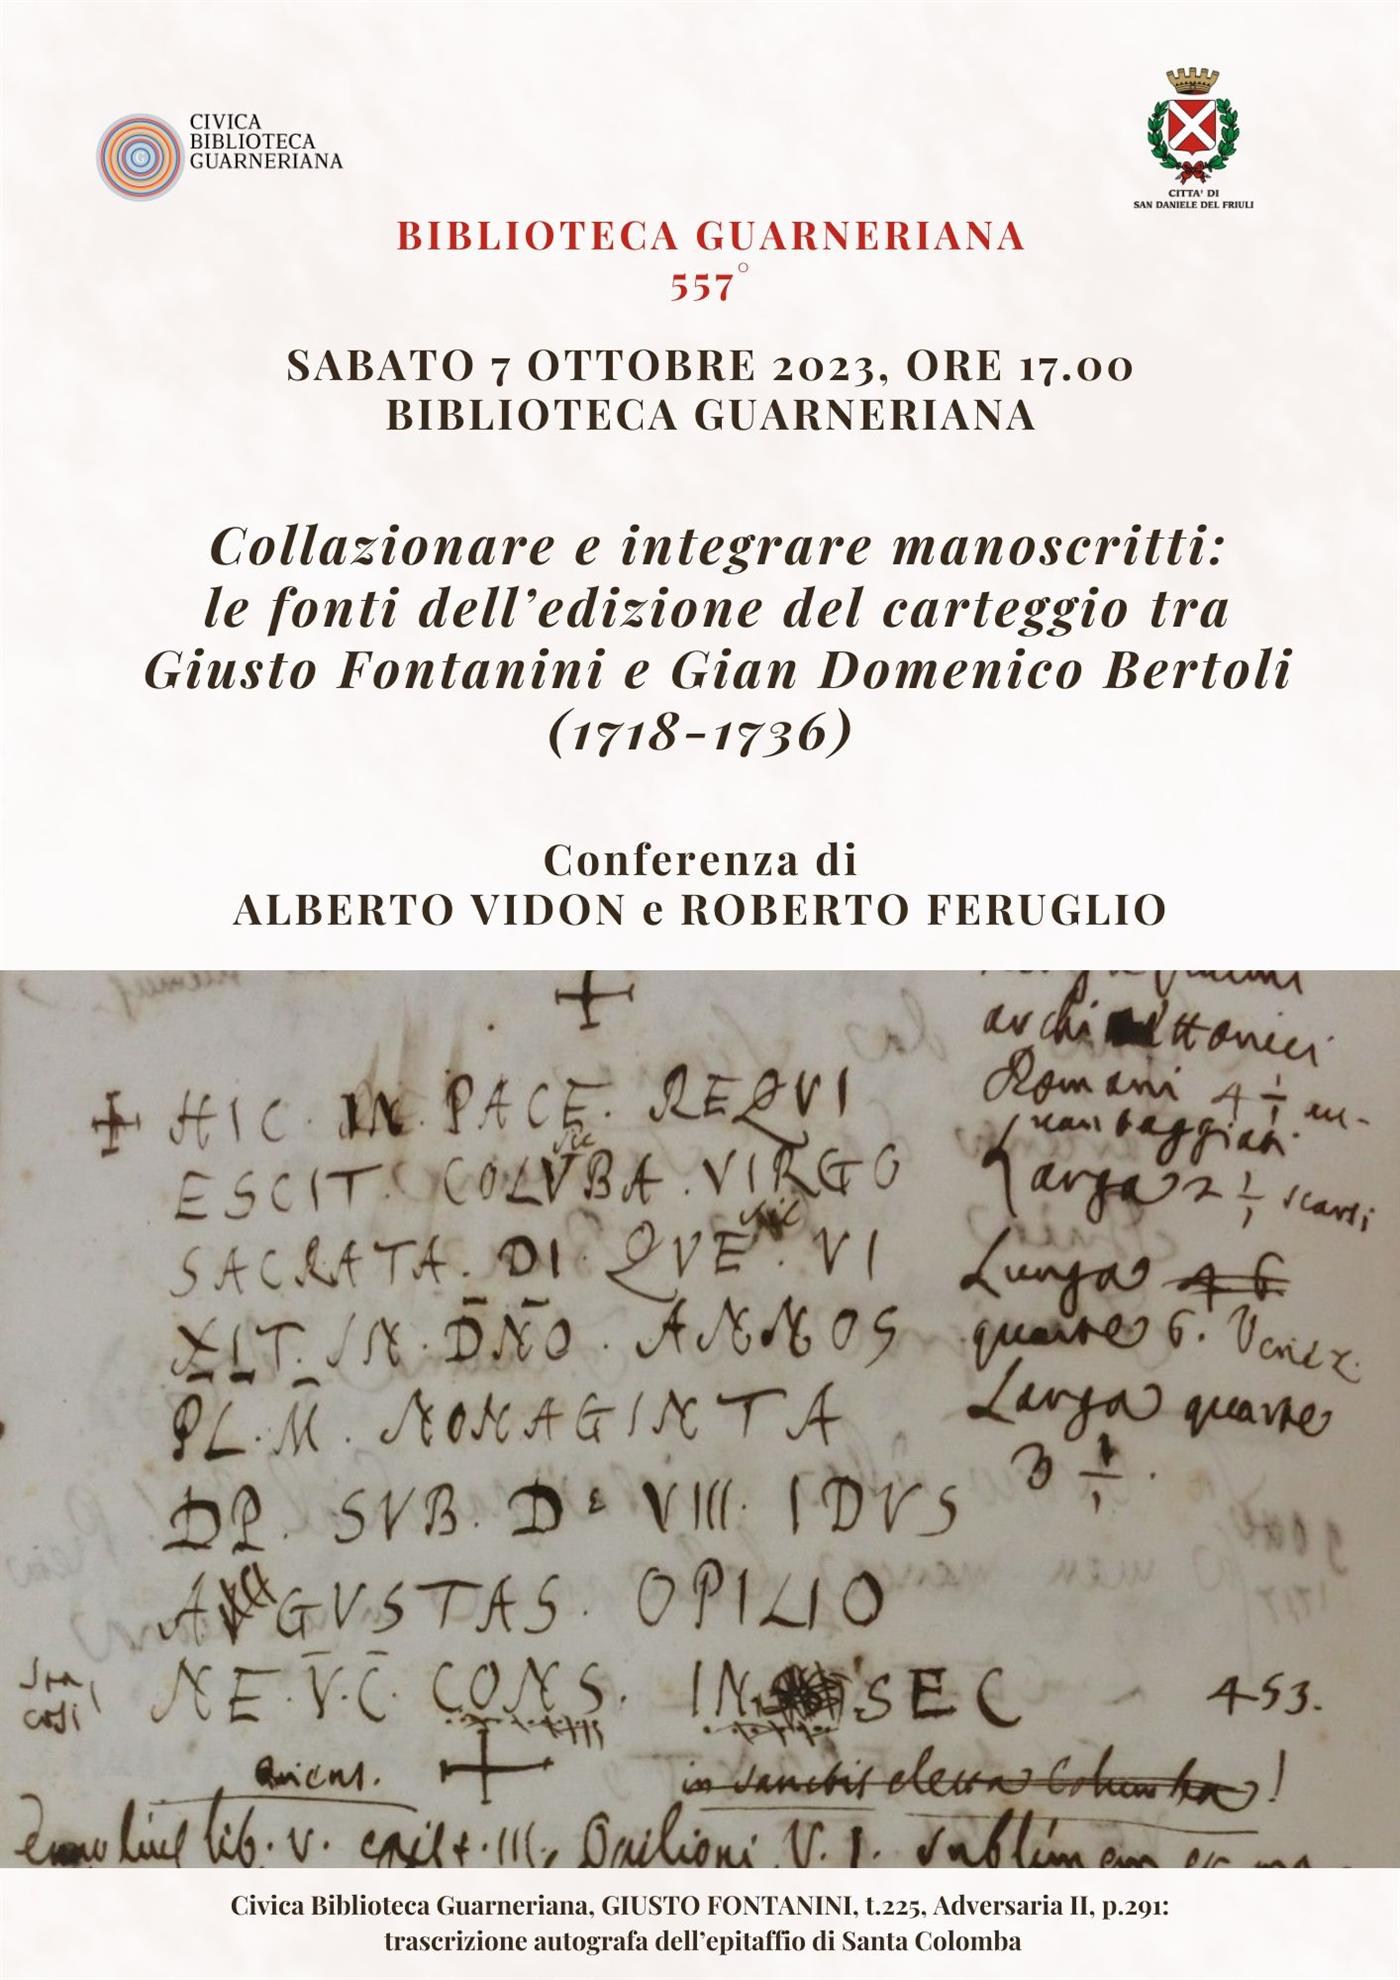 CIVICA
BIBLIOTECA
GUARNERIANA
CITTA' DI
SAN DANIELE DEL FRIULI
BIBLIOTECA GUARNERIANA
557°
SABATO 7 OTTOBRE 2023, ORE 17.00
BIBLIOTECA GUARNERIANA
Collazionare e integrare manoscritti:
le fonti dell'edizione del carteggio tra
Giusto Fontanini e Gian Domenico Bertoli
(1718-1736)
Conferenza di
ALBERTO VIDON e ROBERTO FERUGLIO
HIC · IN · PACE · REQVI
sic
ESCIT · COLVBA · VIRGO
sic
SACRATA · DI · QVE · VI
XIT · IN · DNO · ANNOS
PL · M · NONAGINTA
DP · SVB · D · VIII · IDVS
AGVSTAS · OPILIO
NE · V̅ · C̅ · CONS · IN SEC
Romani 4 1/1
Larga 2 1/1 scarsi
Lunga 4 6
quarte 6. Venez.
Larga quarte
3 1/1 .
453.
in sanctis electa Columba!
lib. V. epist. III. Opilioni V. I. sublimem
Civica Biblioteca Guarneriana, GIUSTO FONTANINI, t.225, Adversaria II, p.291:
trascrizione autografa dell'epitaffio di Santa Colomba